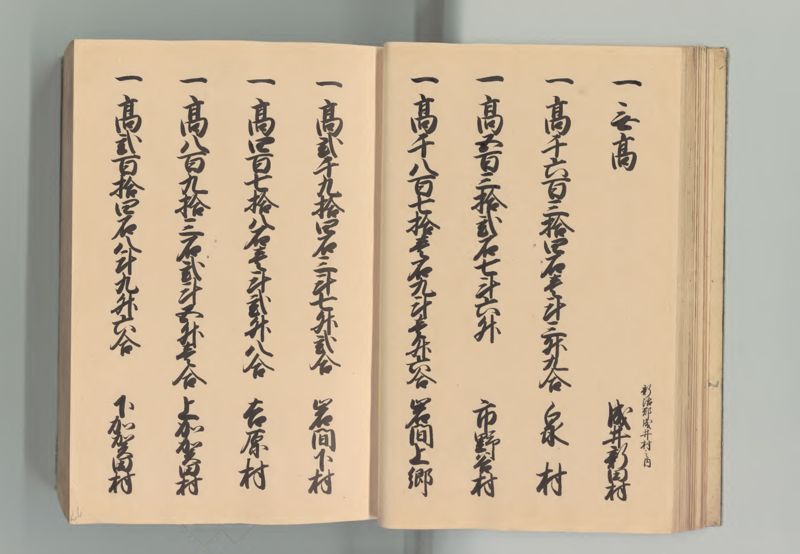 一 無高 新治郡成井村之内 成井新田村
一 高千六百三拾四石壱斗三升九合 泉村
一 高五百三拾弐石七斗六升 市野谷村
一 高千八百七拾壱石九斗壱升六合 岩間上郷
一 高弐千九拾四石三斗七升弐合 岩間下村
一 高四百七拾八石壱斗弐升八合 吉原村
一 高八百九拾三石弐斗五升壱合 上加賀田村
一 高弐百拾四石八斗九升六合 下加賀田村